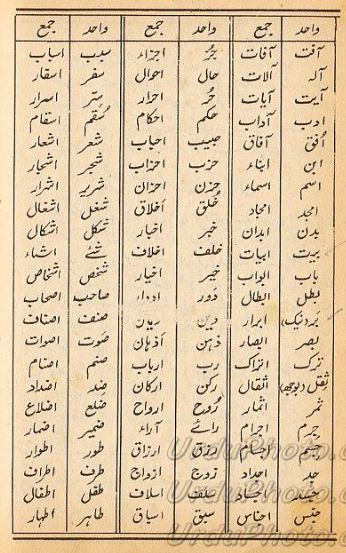 واحد جمع واحد جمع واحد جمع
آفت آفات جُز اجزاء سبب اسباب
آلہ آلات حال احوال سفر اسفار
آیت آیات حُر احرار سِتر اسرار
ادب آداب حکم احکام سُقم اسقام
اُفق آفاق حبیب احباب شعر اشعار
ابن ابناء حزب احزاب شجر اشجار
اسم اسماء حزن احزان شریر اشرار
امجد امجاد خُلق اخلاق شغل اشغال
بدن ابدان خبر اخبار شکل اشکال
بیت ابیات خلف اخلاف شئے اشیاء
باب ابواب خیر اخیار شخص اشخاص
بطل ابطال دَور ادوار صاحب اصحاب
بَر(نیک) ابرار دین ادیان صنف اصناف
بصر ابصار ذہن اذہان صَوت اصوات
ترک اتراک رب ارباب صنم اصنام
ثِقل (بوجھ) اثقال رکن ارکان ضِد اضداد
ثمر اثمار رُوح ارواح ضلع اضلاع
جِرم اجرام رائے آراء ضمیر اضمار
جسم اجسام رزق ارزاق طور اطوار
جد اجداد زوج ازواج طرف اطراف
جسد اجساد سلف اسلاف طفل اطفال
جنس اجناس سبق اسباق طاہر اطہار
UrduPhoto.c
UrduPhoto.c
UrduPhoto.c